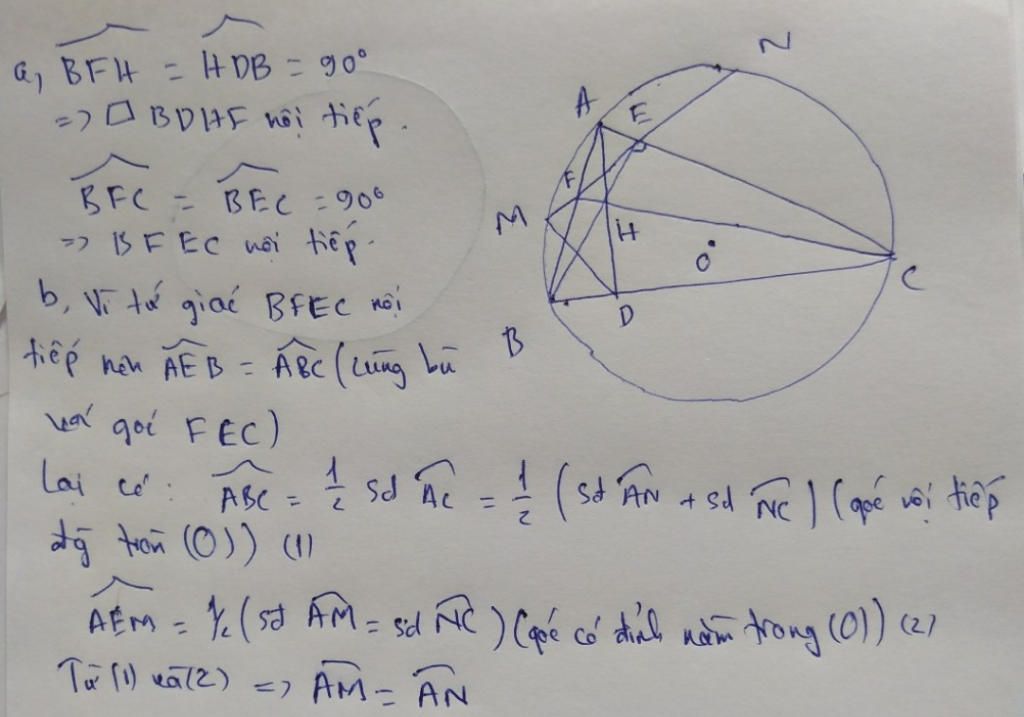 a, BFH = HDB = 90°
=> □ BDHF nội tiếp.
BFC = BEC = 90°
=> BFEC nội tiếp.
b, Vì tứ giác BFEC nội
tiếp nên AEB = ABC (cùng bù
với góc FEC)
Lại có: ABC = 1/2 sđ AC = 1/2 (sđ AN + sđ NC) (góc nội tiếp
đg tròn (O)) (1)
AEM = 1/2 (sđ AM = sđ NC) (góc có đỉnh nằm trong (O)) (2)
Từ (1) và (2) => AM = AN
N
A
E
F
M
H
O
C
B
D